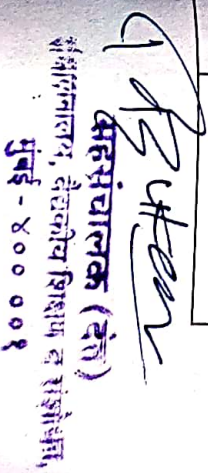 सहसंचालक (दंत)
संचालनालय, वैद्यकीय शिक्षण व संशोधन,
मुंबई - ४०० ००१